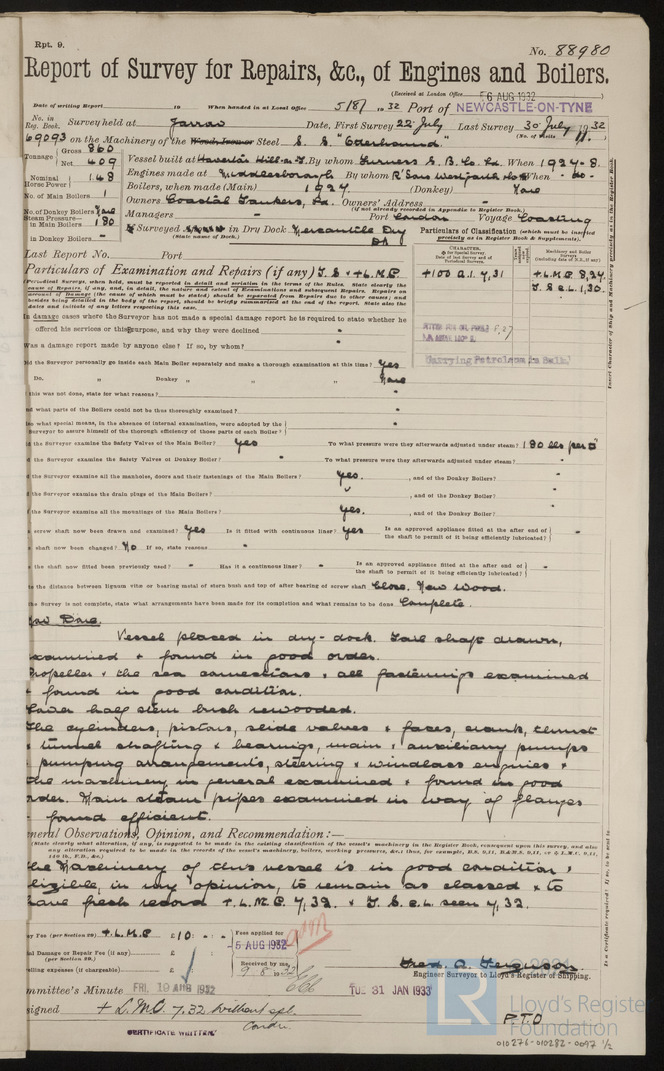 Rpt. 9.
No. 88980
Report of Survey for Repairs, &c., of Engines and Boilers.
(Received at London Office 6 AUG 1932)
Date of writing Report 19 When handed in at Local Office 5/8/1932 Port of NEWCASTLE-ON-TYNE
No. in Reg. Book. Survey held at Jarrow Date, First Survey 22 July Last Survey 30 July 1932
69093 on the Machinery of the Steel S.S. "Otterhound"
Tonnage Gross 860
Net 409
Vessel built at Haverton Hill-o-T. By whom Furness S.B. Co. Ld. When 1924-8
Nominal Horse Power 148
Engines made at Middlesborough By whom When -do-
No. of Main Boilers 1
Boilers, when made (Main) 1924 (Donkey) None
No. of Donkey Boilers None
Owners Coastal Tankers, Ld. Owners' Address -
(if not already recorded in Appendix to Register Book.)
Steam Pressure in Main Boilers 180
Managers - Port London Voyage Coasting
in Donkey Boilers -
Surveyed in Dry Dock Mercantile Dry Dk
(State name of Dock.)
Particulars of Classification (which must be inserted precisely as in Register Book & Supplements).
Last Report No. Port
Particulars of Examination and Repairs (if any) T.S & +L.M.C
+100 A.1. 4,31
+L.M.C 8,24
T.S & L 1,30.
Carrying Petroleum in Bulk
In damage cases where the Surveyor has not made a special damage report he is required to state whether he
offered his services or this purpose, and why they were declined -
Was a damage report made by anyone else? If so, by whom? -
Did the Surveyor personally go inside each Main Boiler separately and make a thorough examination at this time? Yes
Do. " Donkey " " " None
this was not done, state for what reasons? -
nd what parts of the Boilers could not be thus thoroughly examined? -
so what special means, in the absence of internal examination, were adopted by the
Surveyor to assure himself of the thorough efficiency of those parts of each Boiler? -
d the Surveyor examine the Safety Valves of the Main Boiler? Yes To what pressure were they afterwards adjusted under steam? 180 lbs per □"
d the Surveyor examine the Safety Valves of Donkey Boiler? - To what pressure were they afterwards adjusted under steam? -
d the Surveyor examine all the manholes, doors and their fastenings of the Main Boilers? Yes. , and of the Donkey Boilers? -
d the Surveyor examine the drain plugs of the Main Boilers? , and of the Donkey Boiler? -
d the Surveyor examine all the mountings of the Main Boilers? Yes. , and of the Donkey Boiler? -
screw shaft now been drawn and examined? Yes Is it fitted with continuous liner? Yes Is an approved appliance fitted at the after end of
the shaft to permit of it being efficiently lubricated? -
shaft now been changed? No If so, state reasons -
the shaft now fitted been previously used? - Has it a continuous liner? - Is an approved appliance fitted at the after end of
the shaft to permit of it being efficiently lubricated? -
is the distance between lignum vitæ or bearing metal of stern bush and top of after bearing of screw shaft Close. New wood.
the Survey is not complete, state what arrangements have been made for its completion and what remains to be done. Complete.
Now Done.
Vessel placed in dry-dock. Tail shaft drawn,
examined & found in good order.
Propeller & the sea connections & all fastenings examined
& found in good condition.
Lower half stern bush rewooded.
The cylinders, pistons, slide valves & faces, crank, thrust
& tunnel shafting & bearings, main & auxiliary pumps
& pumping arrangements, steering & windlass engines &
the machinery in general examined & found in good
order. Main steam pipes examined in way of flanges
& found efficient.
General Observations, Opinion, and Recommendation:—
The Machinery of this vessel is in good condition &
eligible, in my opinion, to remain as classed & to
have fresh record +L.M.C 7,32. & T.S.C.L seen 7,32.
ey Fee (per Section 29) +L.M.C £10 : - : -
Fees applied for
5 AUG 1932
ial Damage or Repair Fee (if any) £ : :
(per Section 29.)
Received by me,
9.8.1932
elling expenses (if chargeable) £ : :
Fred. A. Ferguson
Engineer Surveyor to Lloyd's Register of Shipping.
mmittee's Minute FRI. 19 AUG 1932 TUE 31 JAN 1933
signed + L.M.C. 7.32 without spl.
Condn.
CERTIFICATE WRITTEN
P.T.O
© 2021
LR
Lloyd's Register
Foundation
010276-010282-0097 1/2